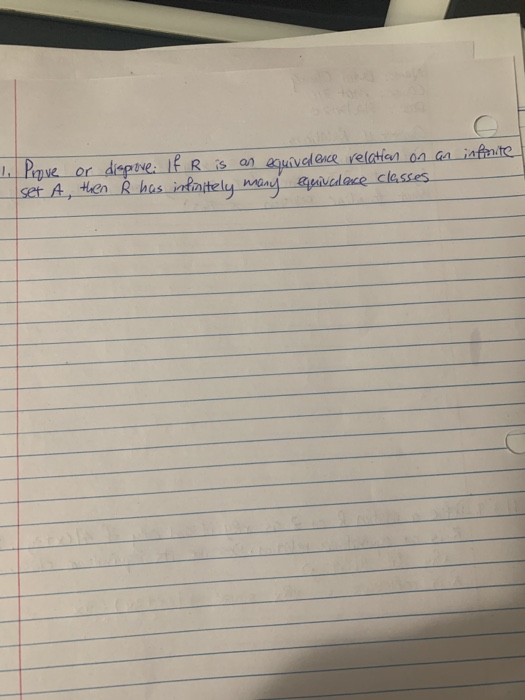 1. Prove or disprove: If R is an equivalence relation on an infinite
set A, then R has infinitely many equivalence classes